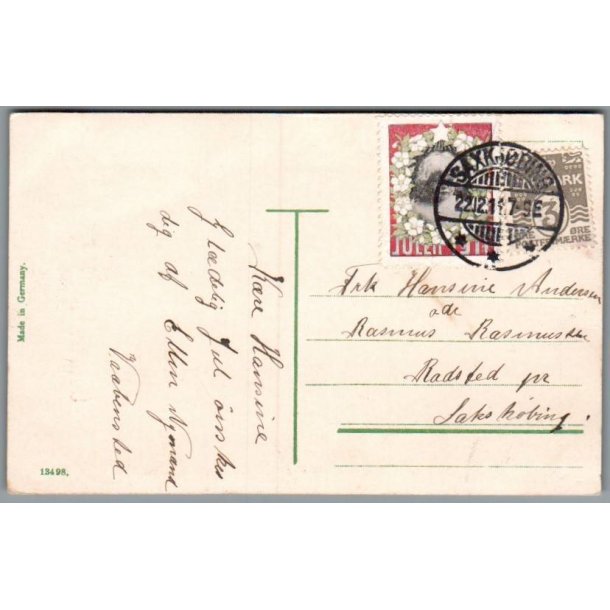 Made in Germany.
13498.
Kære Hansine
Glædelig Jul ønskes
dig af Ellen Nymand
Vaabensted
SAXKJØBING
22.12.14. 7-9E
JULEN 1914
3
ØRE
Frk Hansine Andersen
ade
Rasmus Rasmussen
Radsted pr
Sakskøbing.